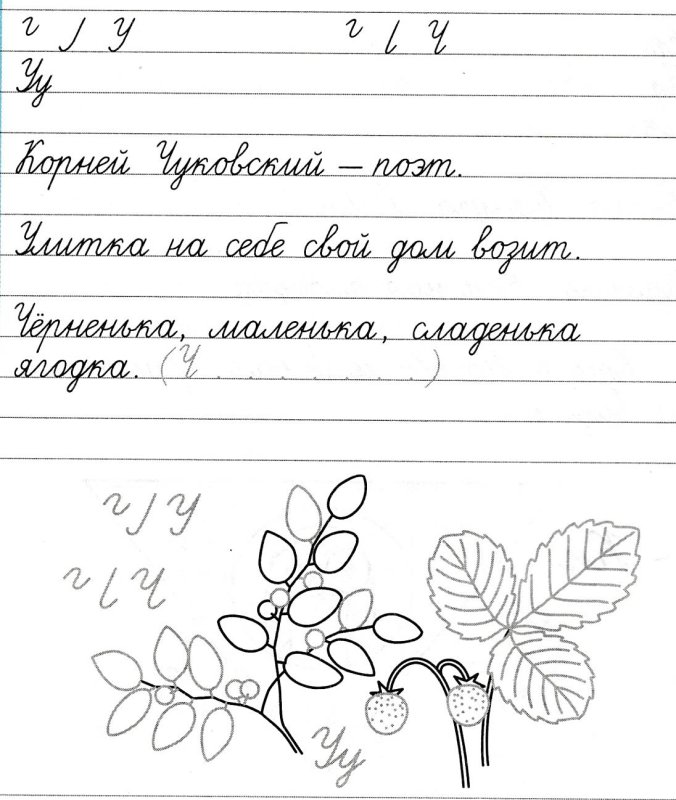 г ﺭ У г ɩ Ч
Уу
Корней Чуковский – поэт.
Улитка на себе свой дом возит.
Чёрненька, маленька, сладенька
ягодка. (Ч . . . . . . .)
У
Ч
Уу